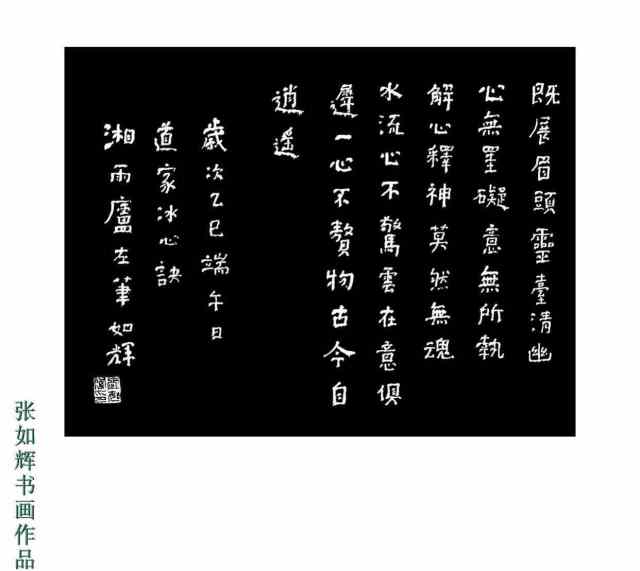 既展眉頭靈臺清幽
心無罣礙意無所執
解心釋神莫然無魂
水流心不驚雲在意俱
遲一心不贅物古今自
逍遙
歲次乙巳端午日
道家冰心訣
湘雨廬左筆如輝
张如辉书画作品